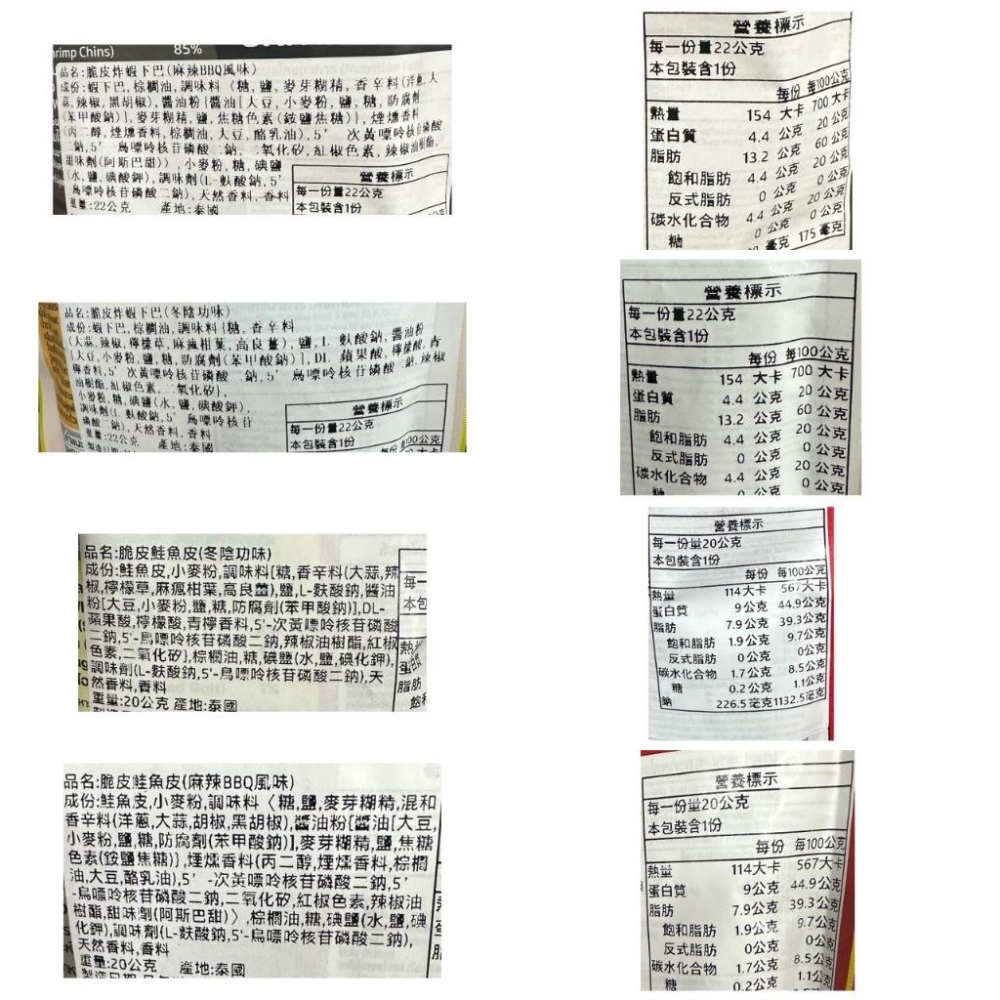 rimp Chins) 85%
品名:脆皮炸蝦下巴(麻辣BBQ風味)
成份:蝦下巴,棕櫚油,調味料〈糖,鹽,麥芽糊精,香辛料(洋蔥,大
蒜,辣椒,黑胡椒),醬油粉{醬油[大豆,小麥粉,鹽,糖,防腐劑
(苯甲酸鈉)],麥芽糊精,鹽,焦糖色素(銨鹽焦糖)},煙燻香料
(丙二醇,煙燻香料,棕櫚油,大豆,酪乳油),5' 次黃嘌呤核苷磷酸
二鈉,5' 鳥嘌呤核苷磷酸二鈉,二氧化矽,紅椒色素,辣椒油樹酯,
甜味劑(阿斯巴甜)〉,小麥粉,糖,碘鹽
(水,鹽,碘酸鉀),調味劑(L-麩酸鈉,5'
鳥嘌呤核苷磷酸二鈉),天然香料,香料
重量:22公克 產地:泰國
營養標示
每一份量22公克
本包裝含1份
營養標示
每一份量22公克
本包裝含1份
每份 每100公克
熱量 154 大卡 700 大卡
蛋白質 4.4 公克 20 公克
脂肪 13.2 公克 60 公克
飽和脂肪 4.4 公克 20 公克
反式脂肪 0 公克 0 公克
碳水化合物 4.4 公克 20 公克
糖 0 公克 0 公克
毫克 175 毫克
品名:脆皮炸蝦下巴(冬陰功味)
成份:蝦下巴,棕櫚油,調味料{糖,香辛料
(大蒜,辣椒,檸檬草,麻瘋柑葉,高良薑),鹽,L 麩酸鈉,醬油粉
[大豆,小麥粉,鹽,糖,防腐劑(苯甲酸鈉)],DL 蘋果酸,檸檬酸,青
檸香料,5' 次黃嘌呤核苷磷酸二鈉,5' 鳥嘌呤核苷磷酸二鈉,辣椒
油樹酯,紅椒色素,二氧化矽},
小麥粉,糖,碘鹽(水,鹽,碘酸鉀),
調味劑(L 麩酸鈉,5' 鳥嘌呤核苷
磷酸二鈉),天然香料,香料
重量:22公克 產地:泰國
營養標示
每一份量22公克
本包裝含1份
每份 每100公克
營養標示
每一份量22公克
本包裝含1份
每份 每100公克
熱量 154 大卡 700 大卡
蛋白質 4.4 公克 20 公克
脂肪 13.2 公克 60 公克
飽和脂肪 4.4 公克 20 公克
反式脂肪 0 公克 0 公克
碳水化合物 4.4 公克 20 公克
糖 0 公克 0 公克
品名:脆皮鮭魚皮(冬陰功味)
成份:鮭魚皮,小麥粉,調味料[糖,香辛料(大蒜,辣
椒,檸檬草,麻瘋柑葉,高良薑),鹽,L-麩酸鈉,醬油
粉[大豆,小麥粉,鹽,糖,防腐劑(苯甲酸鈉)],DL-
蘋果酸,檸檬酸,青檸香料,5'-次黃嘌呤核苷磷酸
二鈉,5'-鳥嘌呤核苷磷酸二鈉,辣椒油樹酯,紅椒
色素,二氧化矽],棕櫚油,糖,碘鹽(水,鹽,碘化鉀),
調味劑(L-麩酸鈉,5'-鳥嘌呤核苷磷酸二鈉),天
然香料,香料
重量:20公克 產地:泰國
每一
本包
脂肪
營養標示
每一份量20公克
本包裝含1份
每份 每100公克
熱量 114大卡 567大卡
蛋白質 9公克 44.9公克
脂肪 7.9公克 39.3公克
飽和脂肪 1.9公克 9.7公克
反式脂肪 0公克 0公克
碳水化合物 1.7公克 8.5公克
糖 0.2公克 1.1公克
鈉 226.5毫克 1132.5毫克
品名:脆皮鮭魚皮(麻辣BBQ風味)
成份:鮭魚皮,小麥粉,調味料〈糖,鹽,麥芽糊精,混和
香辛料(洋蔥,大蒜,胡椒,黑胡椒),醬油粉{醬油[大豆,
小麥粉,鹽,糖,防腐劑(苯甲酸鈉)],麥芽糊精,鹽,焦糖
色素(銨鹽焦糖)},煙燻香料(丙二醇,煙燻香料,棕櫚
油,大豆,酪乳油),5'-次黃嘌呤核苷磷酸二鈉,5'
-鳥嘌呤核苷磷酸二鈉,二氧化矽,紅椒色素,辣椒油
樹酯,甜味劑(阿斯巴甜)〉,棕櫚油,糖,碘鹽(水,鹽,碘
化鉀),調味劑(L-麩酸鈉,5'-鳥嘌呤核苷磷酸二鈉),
天然香料,香料
重量:20公克 產地:泰國
營養標示
每一份量20公克
本包裝含1份
每份 每100公克
熱量 114大卡 567大卡
蛋白質 9公克 44.9公克
脂肪 7.9公克 39.3公克
飽和脂肪 1.9公克 9.7公克
反式脂肪 0公克 0公克
碳水化合物 1.7公克 8.5公克
糖 0.2公克 1.1公克